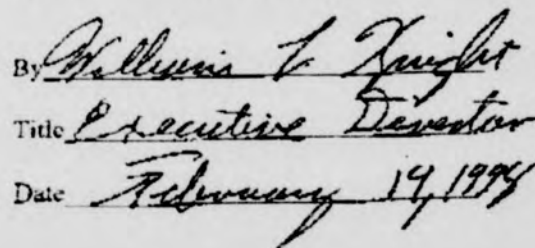 By William L Knight
Title Executive Director
Date February 14, 1994